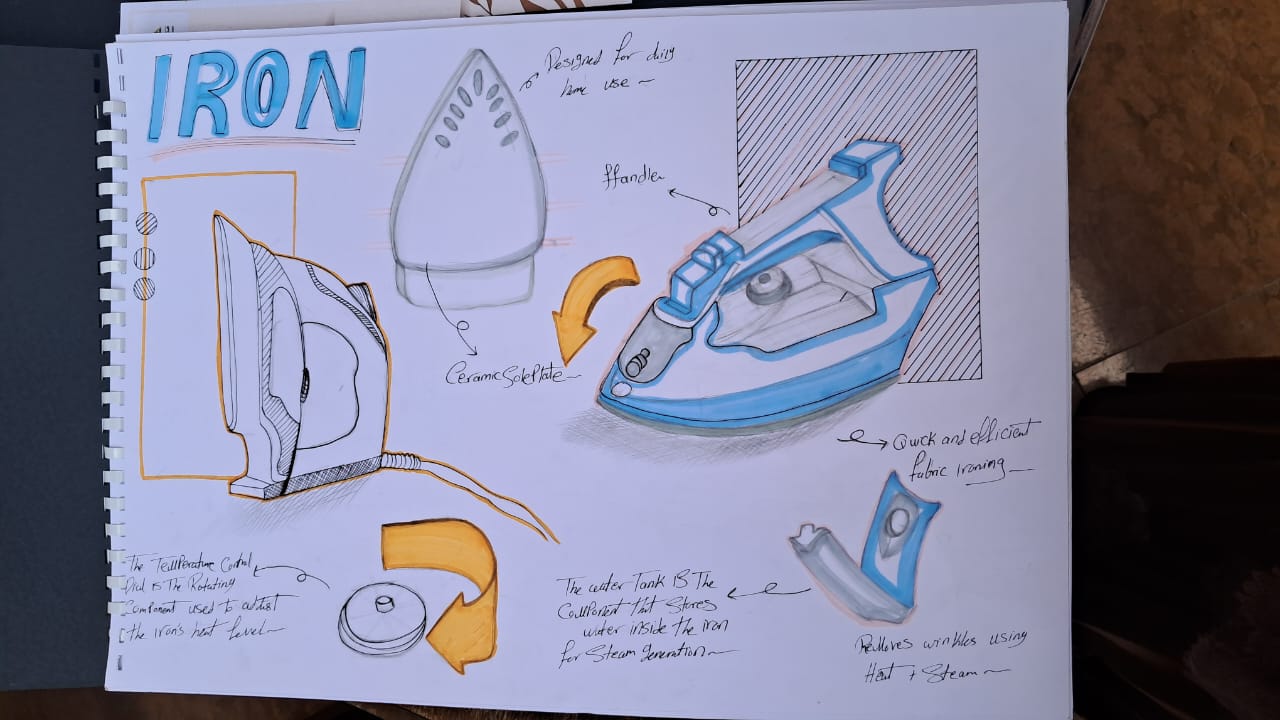 IRON
Designed for daily
home use
Handle
Ceramic Sole Plate
Quick and efficient
fabric ironing
The Temperature Control
Dial is The Rotating
Component used to adjust
the iron's heat level
The water Tank is The
Component that Stores
water inside the iron
for Steam generation
Removes wrinkles using
Heat + Steam